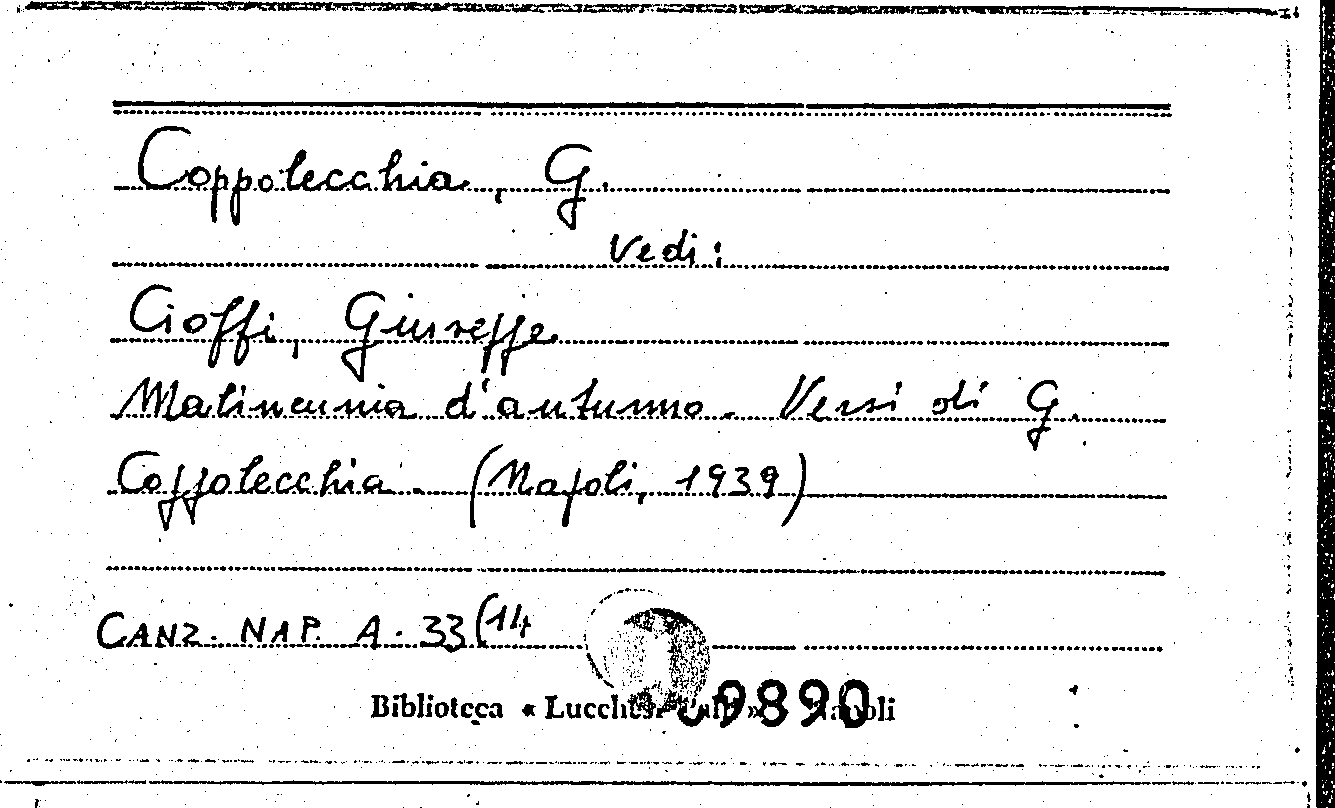 Coppolecchia, G.
Vedi:
Cioffi, Giuseppe
Malincunia d'autunno. Versi di G.
Coppolecchia. (Napoli, 1939)
CANZ. NAP. A. 33(14
Biblioteca « Lucchesi Palli » Napoli
9890